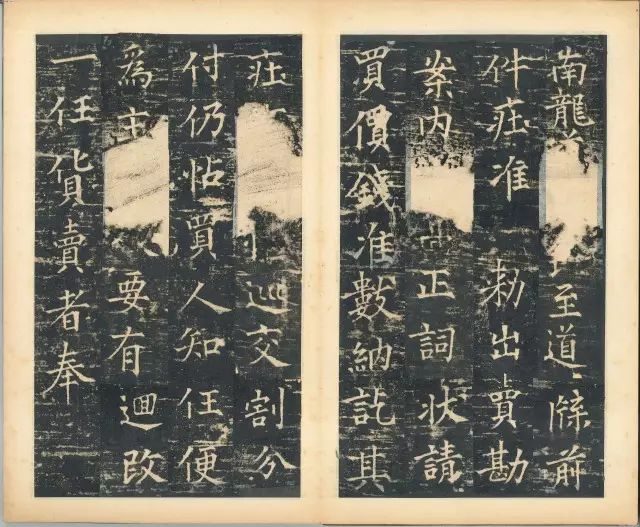 南龍至道牒前
件庄准勑出賣勘
案内正詞狀請
買價錢准數納訖其
庄巡交割分
付仍帖買人知任便
為主要有迴改
一任貨賣者奉